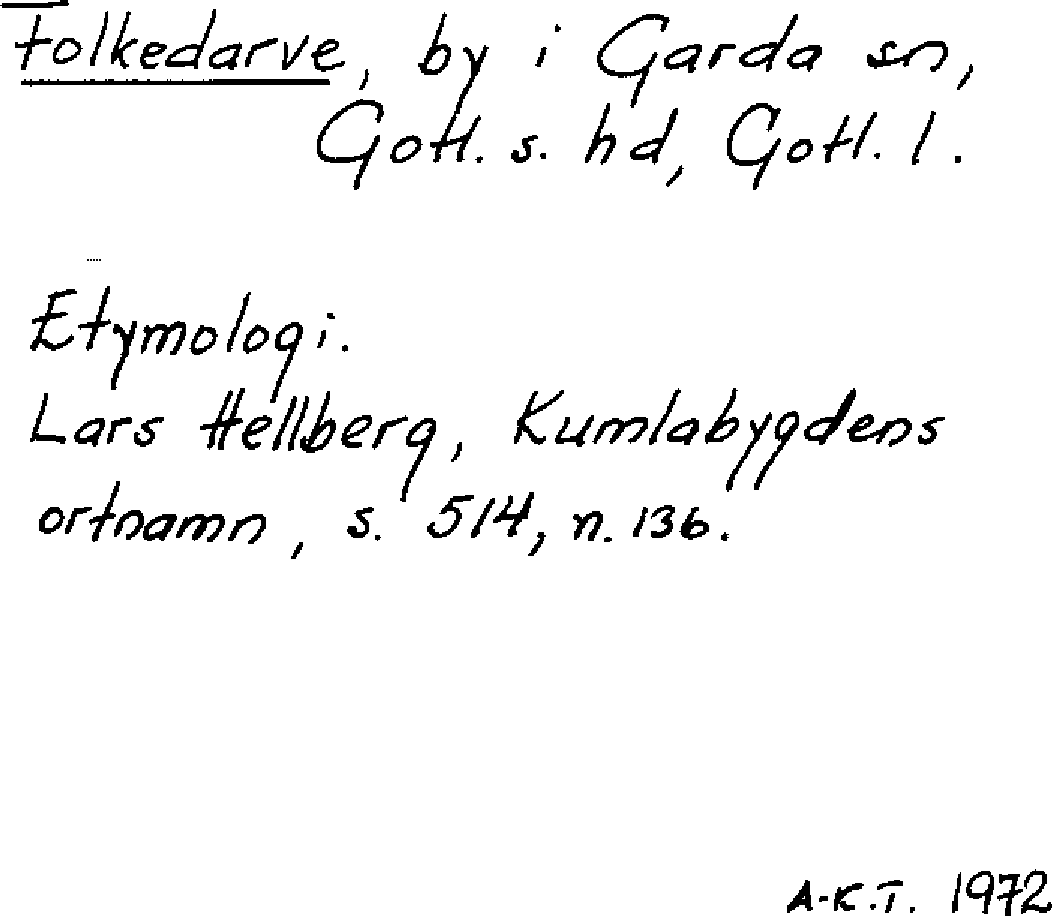 Folkedarve, by i Garda sn,
Gotl. s. hd, Gotl. l.
Etymologi.
Lars Hellberg, Kumlabygdens
ortnamn, s. 514, n. 136.
A-K.T. 1972